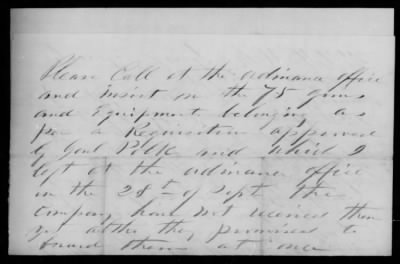 Please Call at the ordinance office
and insist on the 75 guns
and Equipment belonging as
per a Requisition approved
by Genl Polk and which I
left at the ordinance office
on the 28th of Sept the
company have not received them
yet altho they promised to
forward them at once